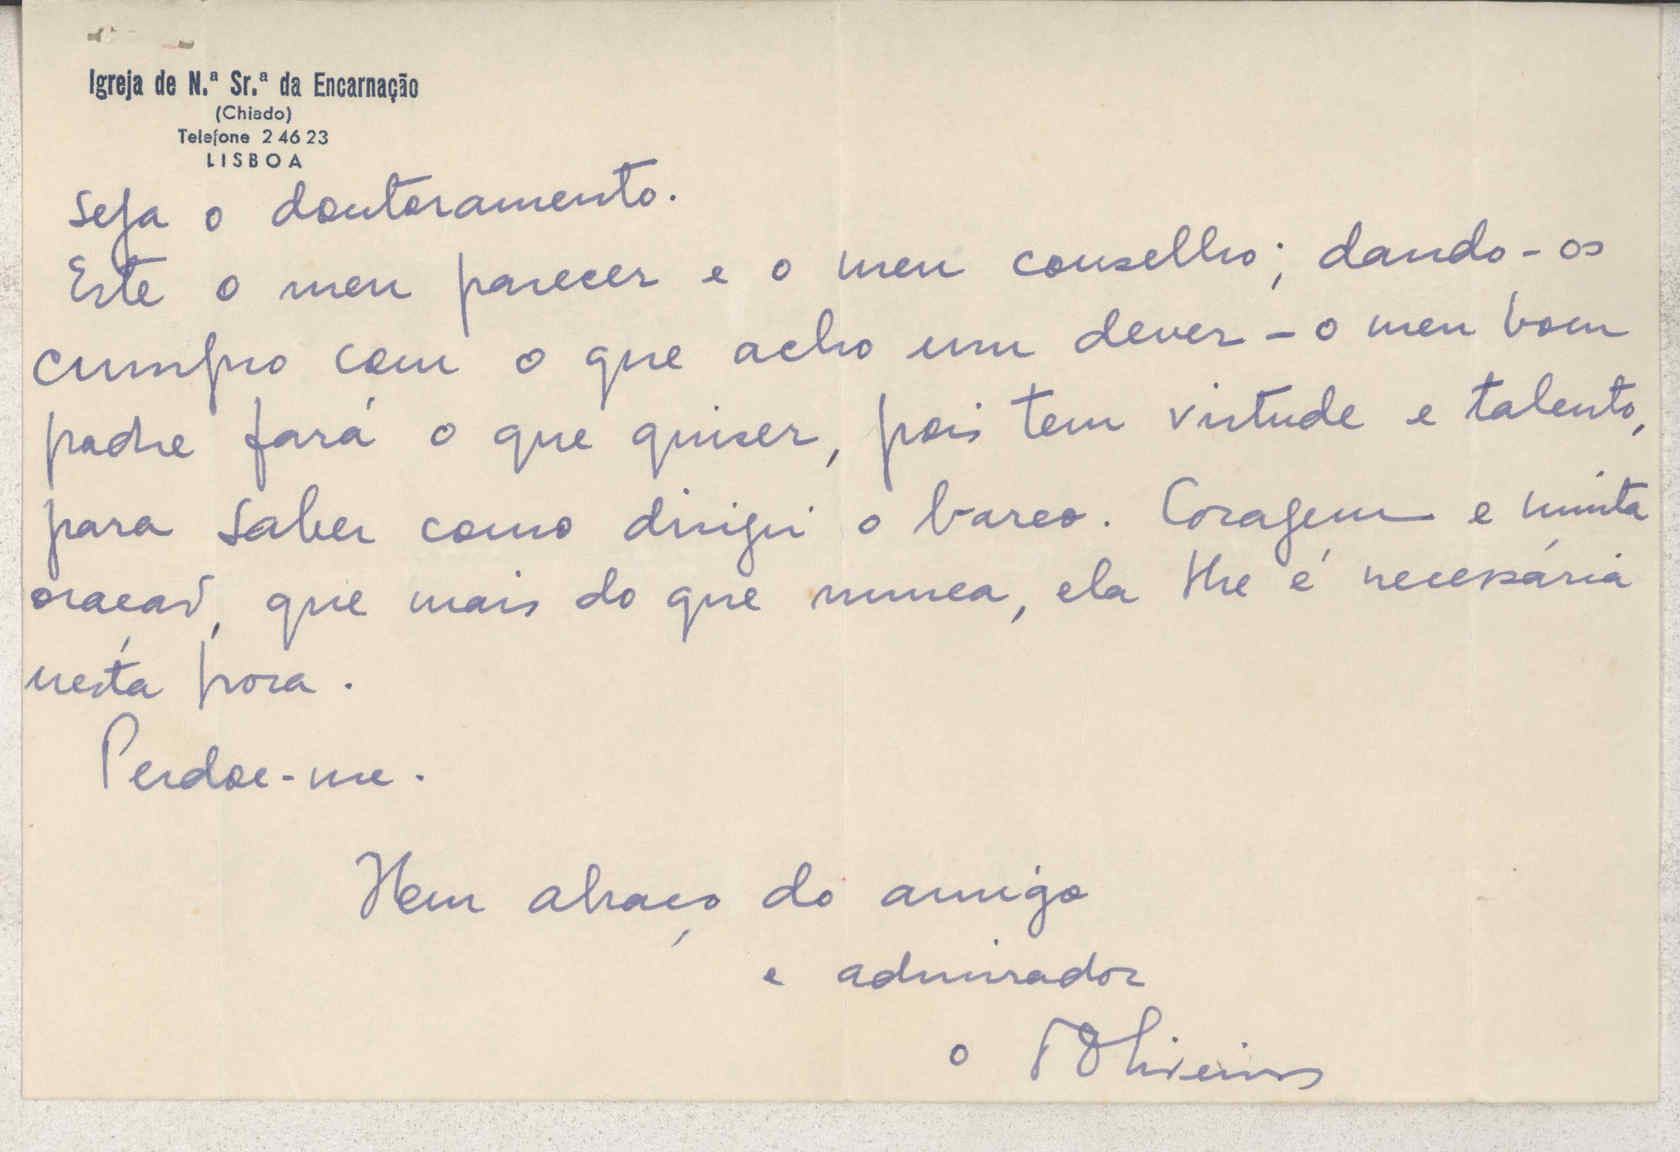 Igreja de N.ª Sr.ª da Encarnação
(Chiado)
Telefone 2 46 23
LISBOA
seja o doutoramento.
Este o meu parecer e o meu conselho; dando-os
cumpro com o que acho um dever - o meu bom
padre fará o que quiser, pois tem virtude e talento,
para saber como dirigir o barco. Coragem e muita
oração, que mais do que nunca, ela lhe é necessária
nesta hora.
Perdoe-me.
Um abraço do amigo
e admirador
o